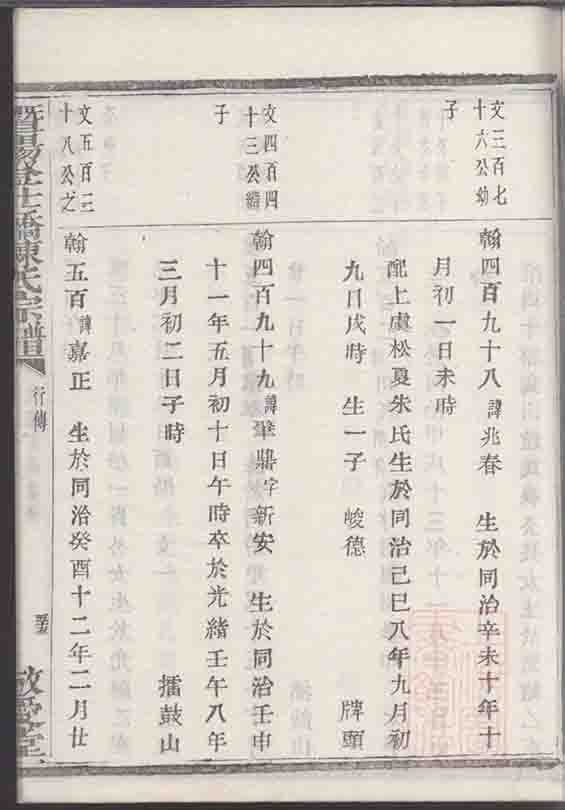 文三百七
十六公幼
子
翰四百九十八諱兆春　生於同治辛未十年十
月初一日未時
配上虞松夏朱氏生於同治己巳八年九月初
九日戌時　生一子　峻德　牌頭
文四百四
十三公繼
子
翰四百九十九諱肇鼎字新安　生於同治壬申
十一年五月初十日午時卒於光緒壬午八年
三月初二日子時　擂鼓山
文五百三
十八公之
翰五百諱嘉正　生於同治癸酉十二年二月廿
陳氏宗譜
行傳
敬愛堂